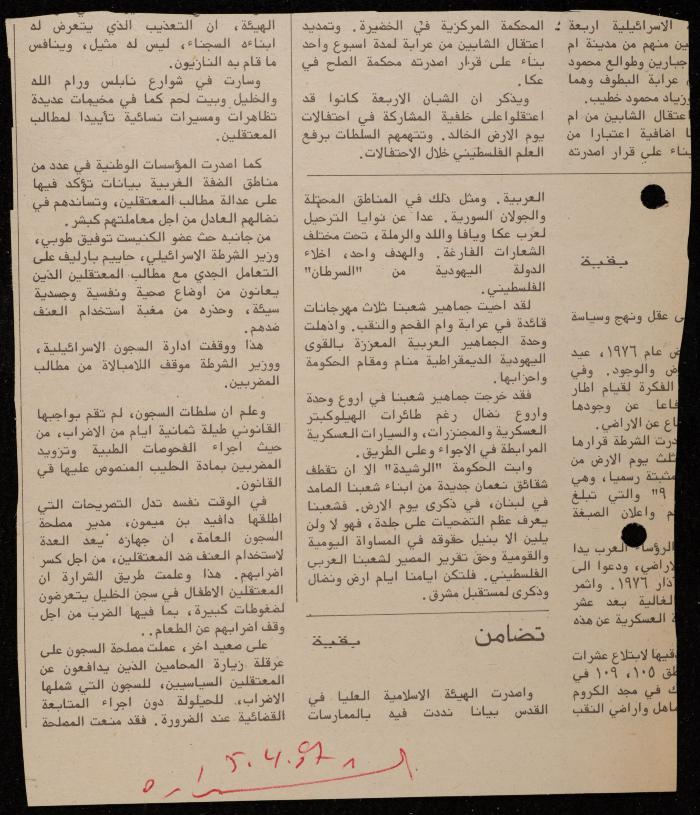 الاسرائيلية اربعة
ين منهم من مدينة ام
جبارين وطوالع محمود
عرابة البطوف وهما
وزياد محمود خطيب.
اعتقال الشابين من ام
ا اضافية اعتبارا من
بناء على قرار اصدرته
المحكمة المركزية في الخضيرة. وتمديد
اعتقال الشابين من عرابة لمدة اسبوع واحد
بناء على قرار اصدرته محكمة الصلح في
عكا.
ويذكر ان الشبان الاربعة كانوا قد
اعتقلوا على خلفية المشاركة في احتفالات
يوم الارض الخالد. وتتهمهم السلطات برفع
العلم الفلسطيني خلال الاحتفالات.
بقية
ى عقل ونهج وسياسة
ض عام ١٩٧٦، عيد
ض والوجود. وفي
الفكرة لقيام اطار
فاعا عن وجودها
اع عن الاراضي.
درت الشرطة قرارها
ثلث يوم الارض من
مثبتة رسميا، وهي
٩" والتي تبلغ
م واعلان الصبغة
الرؤساء العرب بدا
لاراضي، ودعوا الى
ذار ١٩٧٦. واثمر
الغالية بعد عشر
ة العسكرية عن هذه
دقيها لابتلاع عشرات
طق ١٠٥، ١٠٩ في
ك في مجد الكروم
ماهل واراضي النقب
العربية. ومثل ذلك في المناطق المحتلة
والجولان السورية. عدا عن نوايا الترحيل
لعرب عكا ويافا واللد والرملة، تحت مختلف
الشعارات الفارغة. والهدف واحد، اخلاء
الدولة اليهودية من "السرطان"
الفلسطيني.
لقد احيت جماهير شعبنا ثلاث مهرجانات
قائدة في عرابة وام الفحم والنقب. واذهلت
وحدة الجماهير العربية المعززة بالقوى
اليهودية الديمقراطية منام ومقام الحكومة
واحزابها.
فقد خرجت جماهير شعبنا في اروع وحدة
واروع نضال رغم طائرات الهيلوكبتر
العسكرية والمجنزرات، والسيارات العسكرية
المرابطة في الاجواء وعلى الطريق.
وابت الحكومة "الرشيدة" الا ان تقطف
شقائق نعمان جديدة من ابناء شعبنا الصامد
في لبنان، في ذكرى يوم الارض. فشعبنا
يعرف عظم التضحيات على جلدة، فهو لا ولن
يلين الا بنيل حقوقه في المساواة اليومية
والقومية وحق تقرير المصير لشعبنا العربي
الفلسطيني. فلتكن ايامنا ايام ارض ونضال
وذكرى لمستقبل مشرق.
تضامن بقية
واصدرت الهيئة الاسلامية العليا في
القدس بيانا نددت فيه بالممارسات
الهيئة، ان التعذيب الذي يتعرض له
ابناءه السجناء، ليس له مثيل، وينافس
ما قام به النازيون.
وسارت في شوارع نابلس ورام الله
والخليل وبيت لحم كما في مخيمات عديدة
تظاهرات ومسيرات نسائية تأييدا لمطالب
المعتقلين.
كما اصدرت المؤسسات الوطنية في عدد من
مناطق الضفة الغربية بيانات تؤكد فيها
على عدالة مطالب المعتقلين، وتساندهم في
نضالهم العادل من اجل معاملتهم كبشر.
من جانبه حث عضو الكنيست توفيق طوبي،
وزير الشرطة الاسرائيلي، حاييم بارليف على
التعامل الجدي مع مطالب المعتقلين الذين
يعانون من اوضاع صحية ونفسية وجسدية
سيئة، وحذره من مغبة استخدام العنف
ضدهم.
هذا ووقفت ادارة السجون الاسرائيلية،
ووزير الشرطة موقف اللامبالاة من مطالب
المضربين.
وعلم ان سلطات السجون، لم تقم بواجبها
القانوني طيلة ثمانية ايام من الاضراب، من
حيث اجراء الفحوصات الطبية وتزويد
المضربين بمادة الحليب المنصوص عليها في
القانون.
في الوقت نفسه تدل التصريحات التي
اطلقها دافيد بن ميمون، مدير مصلحة
السجون العامة، ان جهازه يعد العدة
لاستخدام العنف ضد المعتقلين، من اجل كسر
اضرابهم. هذا وعلمت طريق الشرارة ان
المعتقلين الاطفال في سجن الخليل يتعرضون
لضغوطات كبيرة، بما فيها الضرب من اجل
وقف اضرابهم عن الطعام..
على صعيد اخر، عملت مصلحة السجون على
عرقلة زيارة المحامين الذين يدافعون عن
المعتقلين السياسيين، للسجون التي شملها
الاضراب، للحيلولة دون اجراء المتابعة
القضائية عند الضرورة. فقد منعت المصلحة